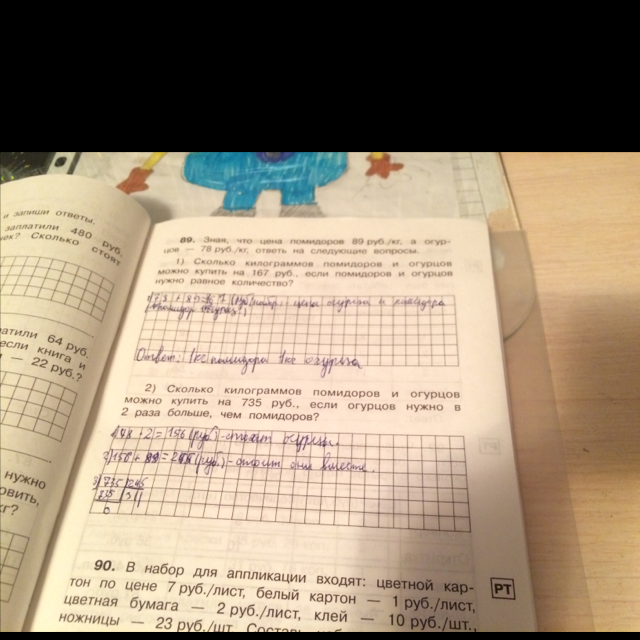 и запиши ответы.
заплатили 480 руб.
Сколько стоят
атили 64 руб.
если книга и
— 22 руб.?
нужно
овить,
кг?
89. Зная, что цена помидоров 89 руб./кг, а огур-
цов — 78 руб./кг, ответь на следующие вопросы.
1) Сколько килограммов помидоров и огурцов
можно купить на 167 руб., если помидоров и огурцов
нужно равное количество?
цена огурца и помидора
Ответ: 1кг помидора 1кг огурца
2) Сколько килограммов помидоров и огурцов
можно купить на 735 руб., если огурцов нужно в
2 раза больше, чем помидоров?
= 156 (руб) - стоят огурцы.
2) 156 + 89 = (руб.) - стоят они вместе.
3) 735 245
735 3
0
90. В набор для аппликации входят: цветной кар-
тон по цене 7 руб./лист, белый картон — 1 руб./лист,
цветная бумага — 2 руб./лист, клей — 10 руб./шт.,
ножницы — 23 руб./шт.
РТ